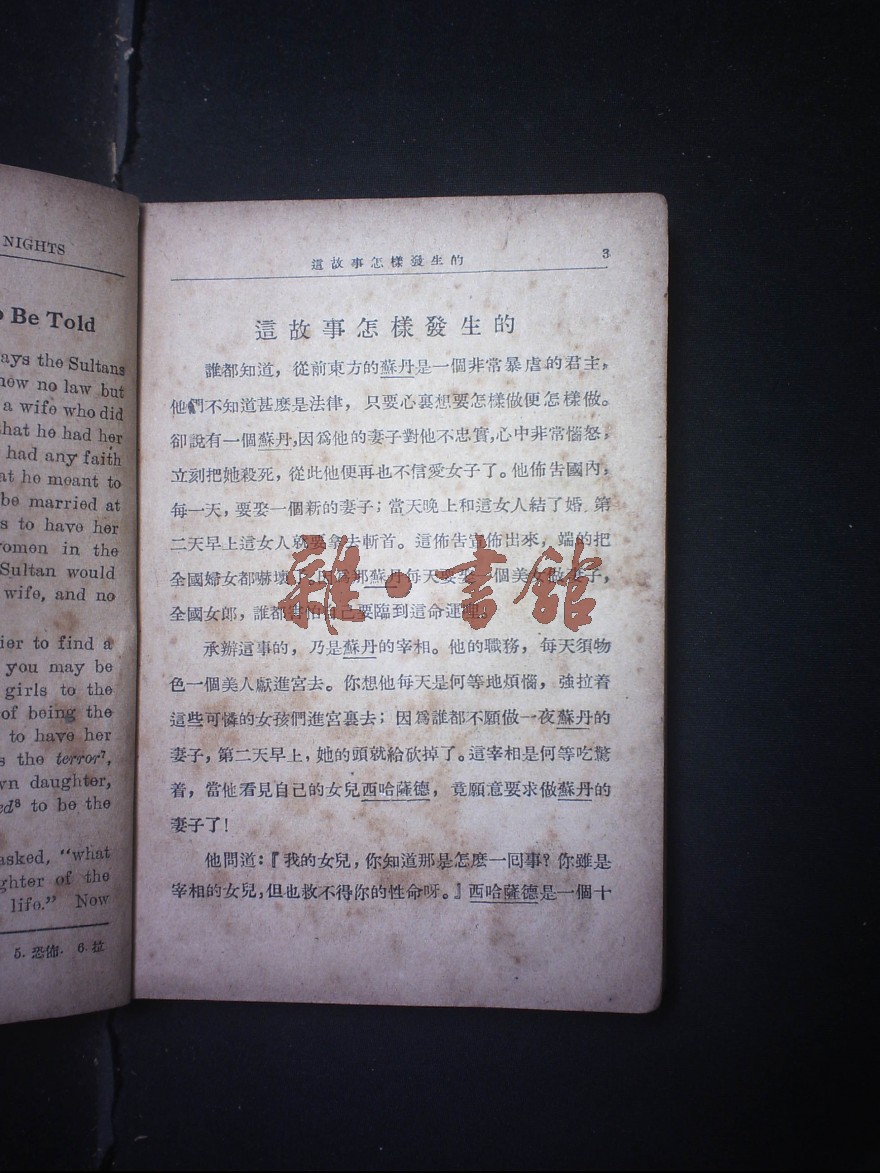 NIGHTS
o Be Told
ays the Sultans
new no law but
a wife who did
that he had her
had any faith
at he meant to
be married at
s to have her
omen in the
Sultan would
wife, and no
ier to find a
you may be
girls to the
of being the
to have her
s the terror⁷,
vn daughter,
ed⁸ to be the
asked, "what
ghter of the
life." Now
5. 恐佈. 6. 拉
這故事怎樣發生的 3
這故事怎樣發生的
誰都知道，從前東方的蘇丹是一個非常暴虐的君主，
他們不知道甚麽是法律，只要心裏想要怎樣做便怎樣做。
卻說有一個蘇丹，因爲他的妻子對他不忠實，心中非常惱怒，
立刻把她殺死，從此他便再也不信愛女子了。他佈告國內，
每一天，要娶一個新的妻子；當天晚上和這女人結了婚，第
二天早上這女人就要拿去斬首。這佈告宣佈出來，端的把
全國婦女都嚇壞了。因爲那蘇丹每天要娶一個美女做妻子，
全國女郎，誰都害怕自己要臨到這命運哩！
承辦這事的，乃是蘇丹的宰相。他的職務，每天須物
色一個美人獻進宮去。你想他每天是何等地煩惱，強拉着
這些可憐的女孩們進宮裏去；因爲誰都不願做一夜蘇丹的
妻子，第二天早上，她的頭就給砍掉了。這宰相是何等吃驚
着，當他看見自己的女兒西哈薩德，竟願意要求做蘇丹的
妻子了！
他問道：『我的女兒，你知道那是怎麽一囘事？你雖是
宰相的女兒，但也救不得你的性命呀。』西哈薩德是一個十
雜·書館